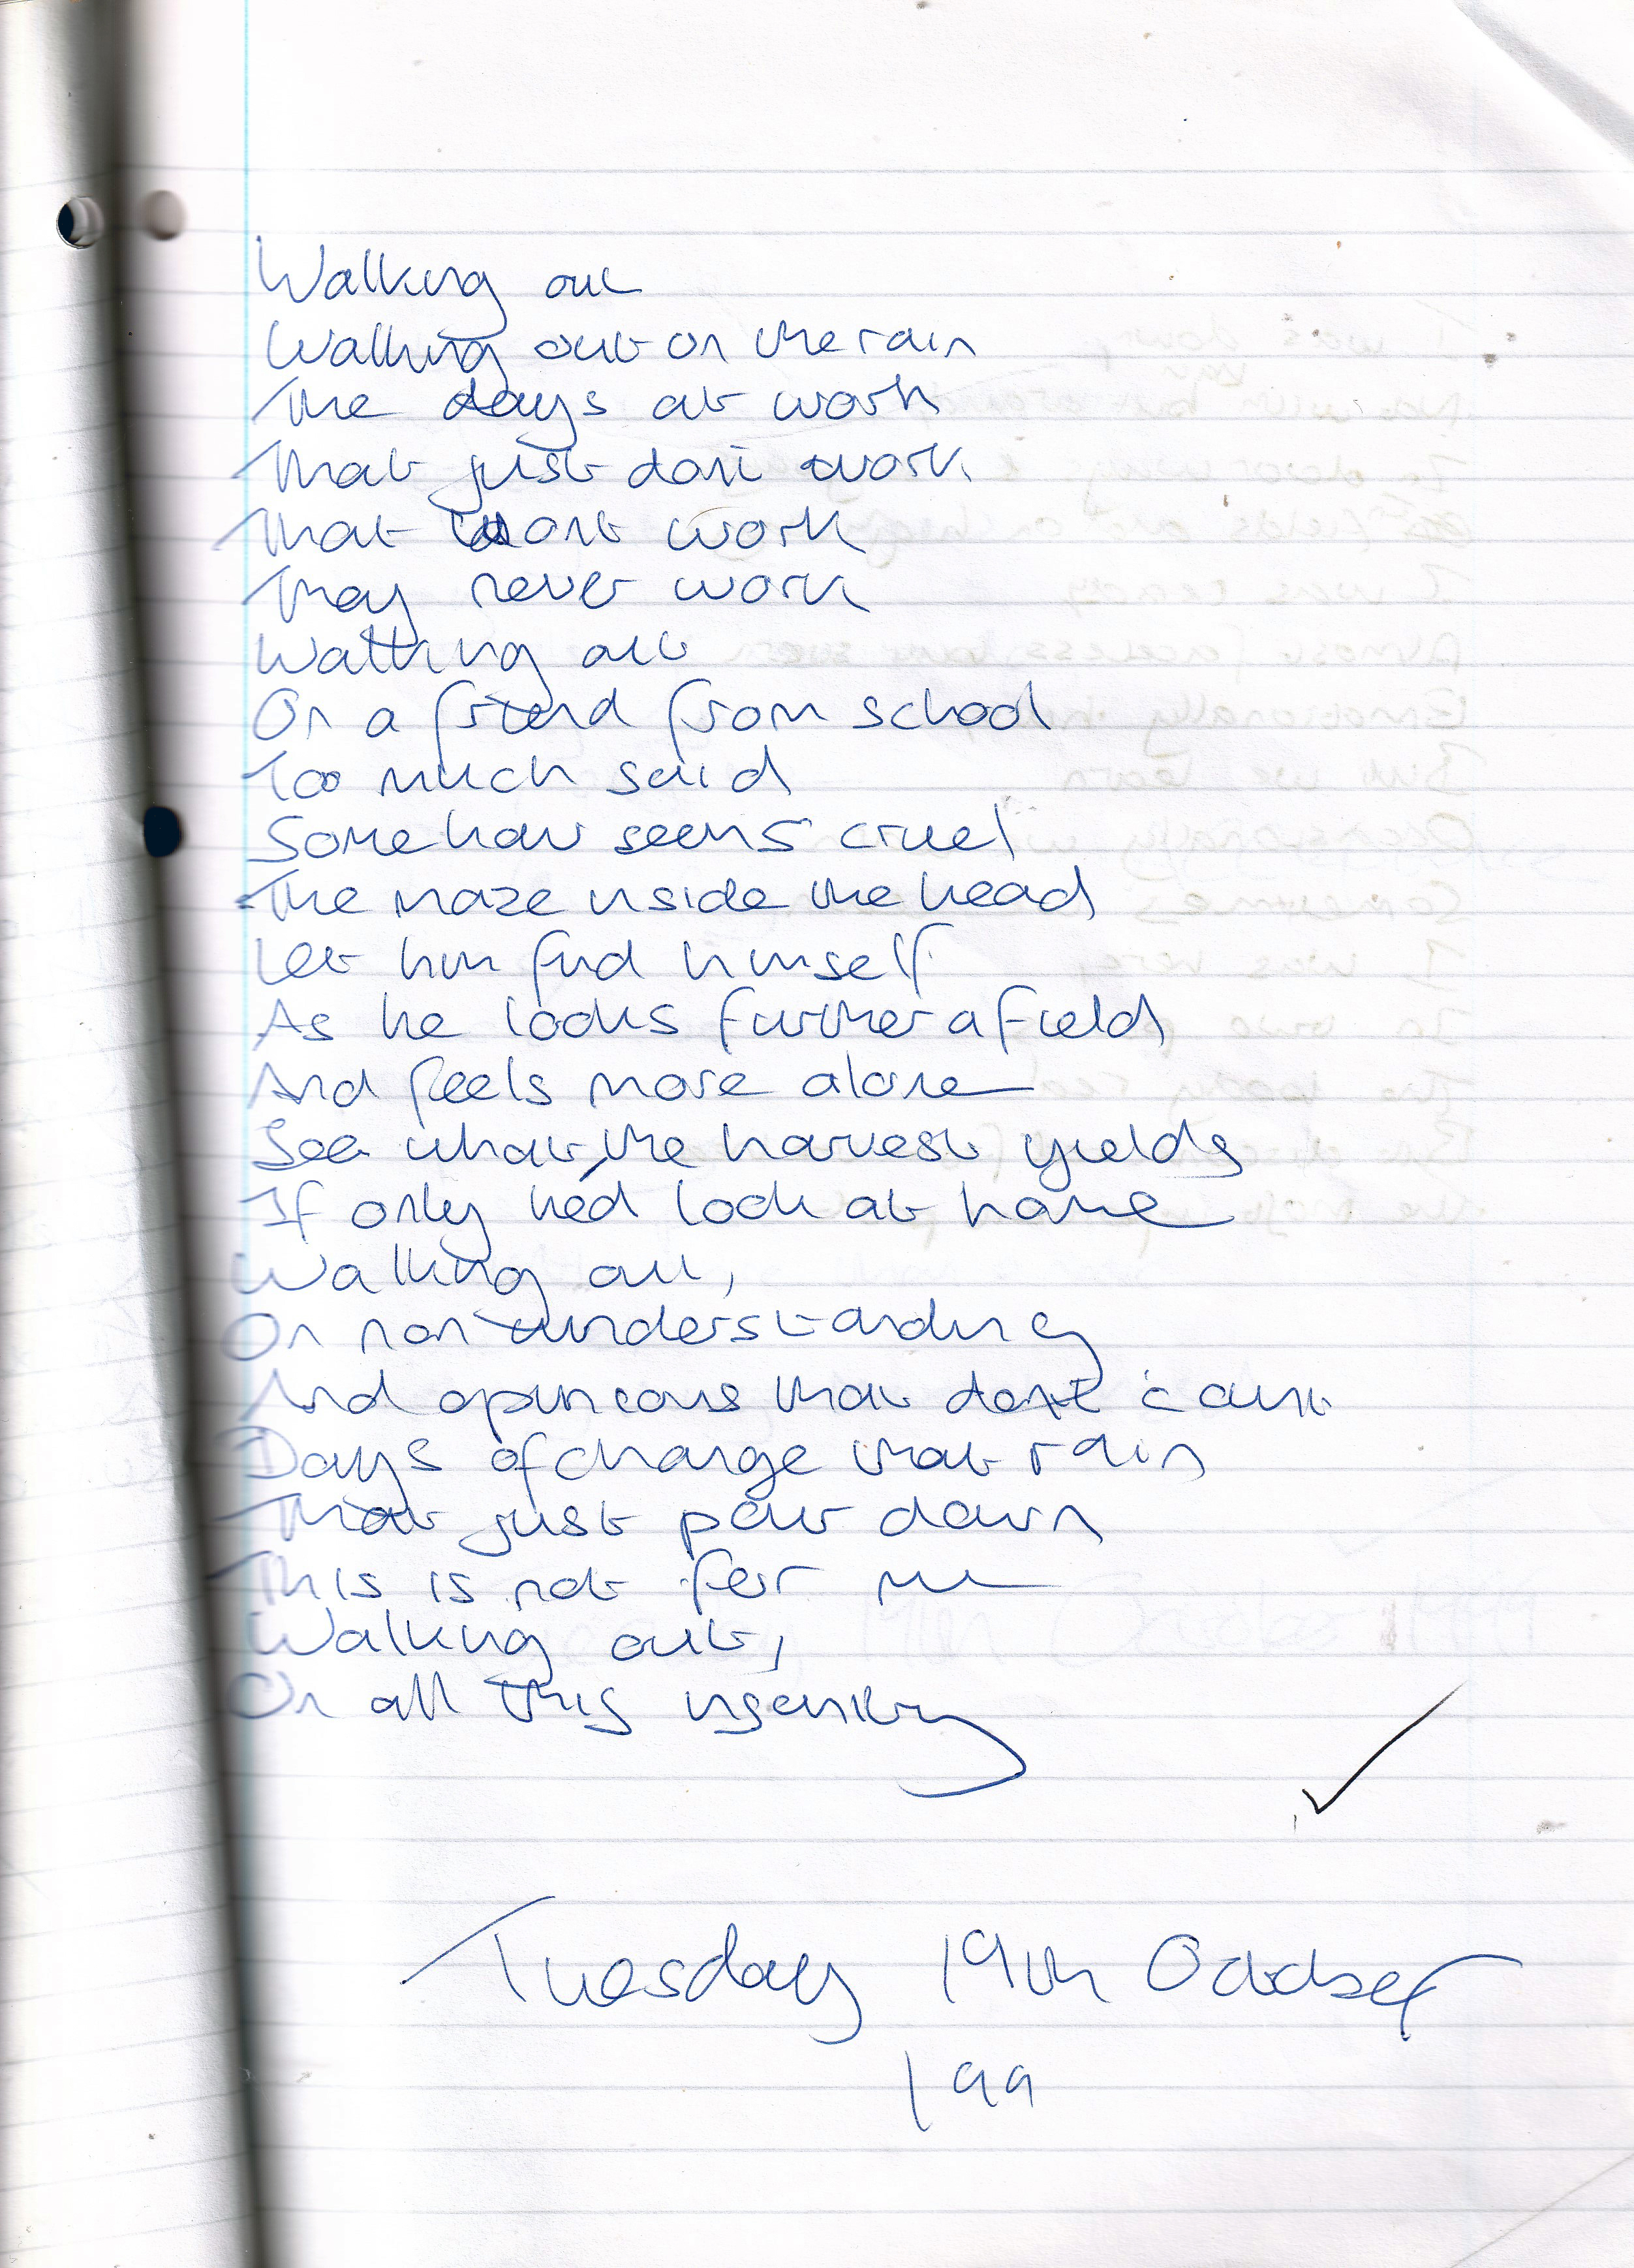 Walking out
Walking out on the rain
The days at work
That just dont work
That wont work
May never work
Walking out
On a friend from school
Too much said
Somehow seems cruel
The maze inside the head
Let him find himself
As he looks further afield
And feels more alone
See what the harvest yields
If only he'd look at home
Walking out,
On non understanding
And opinions that dont count
Days of change that rain
That just pour down
This is not for me
Walking out,
On all this insanity
Tuesday 19th October
199